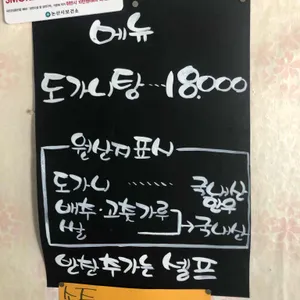 논산시보건소
메뉴
도가니탕 ... 18,000
원산지표시
도가니 ...... 국내산 한우
배추·고춧가루
쌀 → 국내산
반찬추가는 셀프